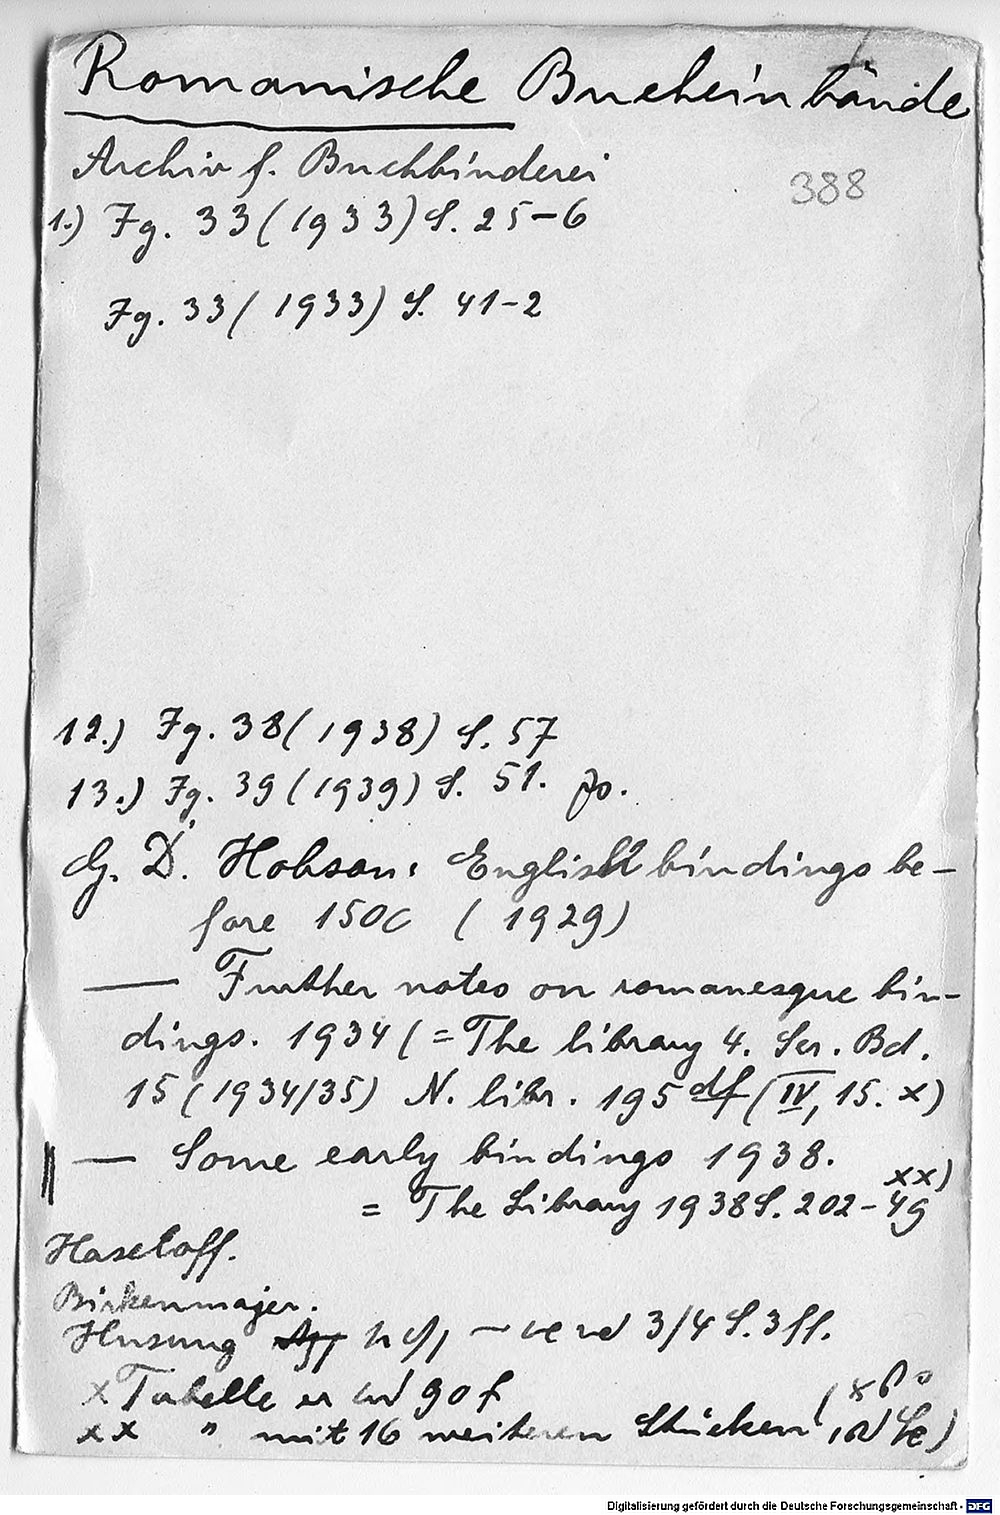 Romanische Bucheinbände
Archiv f. Buchbinderei
388
1.) Jg. 33 (1933) S. 25-6
Jg. 33 (1933) S. 41-2
12.) Jg. 38 (1938) S. 57
13.) Jg. 39 (1939) S. 51.
G. D. Hobson: English bindings be-
fore 1500 (1929)
— Further notes on romanesque bin-
dings. 1934 (= The library 4. Ser. Bd.
15 (1934/35) N. libr. 195 (IV, 15. x)
— Some early bindings 1938.
= The Library 1938 S. 202-49 xx)
Haseloff.
Birkenmajer.
Husung 3/4 S. 3 ff.
x Tabelle 90 f
xx " mit 16 weiteren Stücken
Digitalisierung gefördert durch die Deutsche Forschungsgemeinschaft - DFG